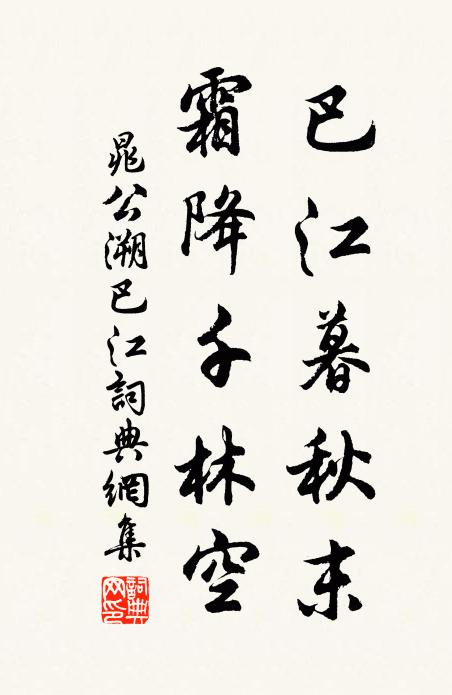 巴江暮秋末
霜降千林空
晁公溯巴江詞典網集
詞典網印